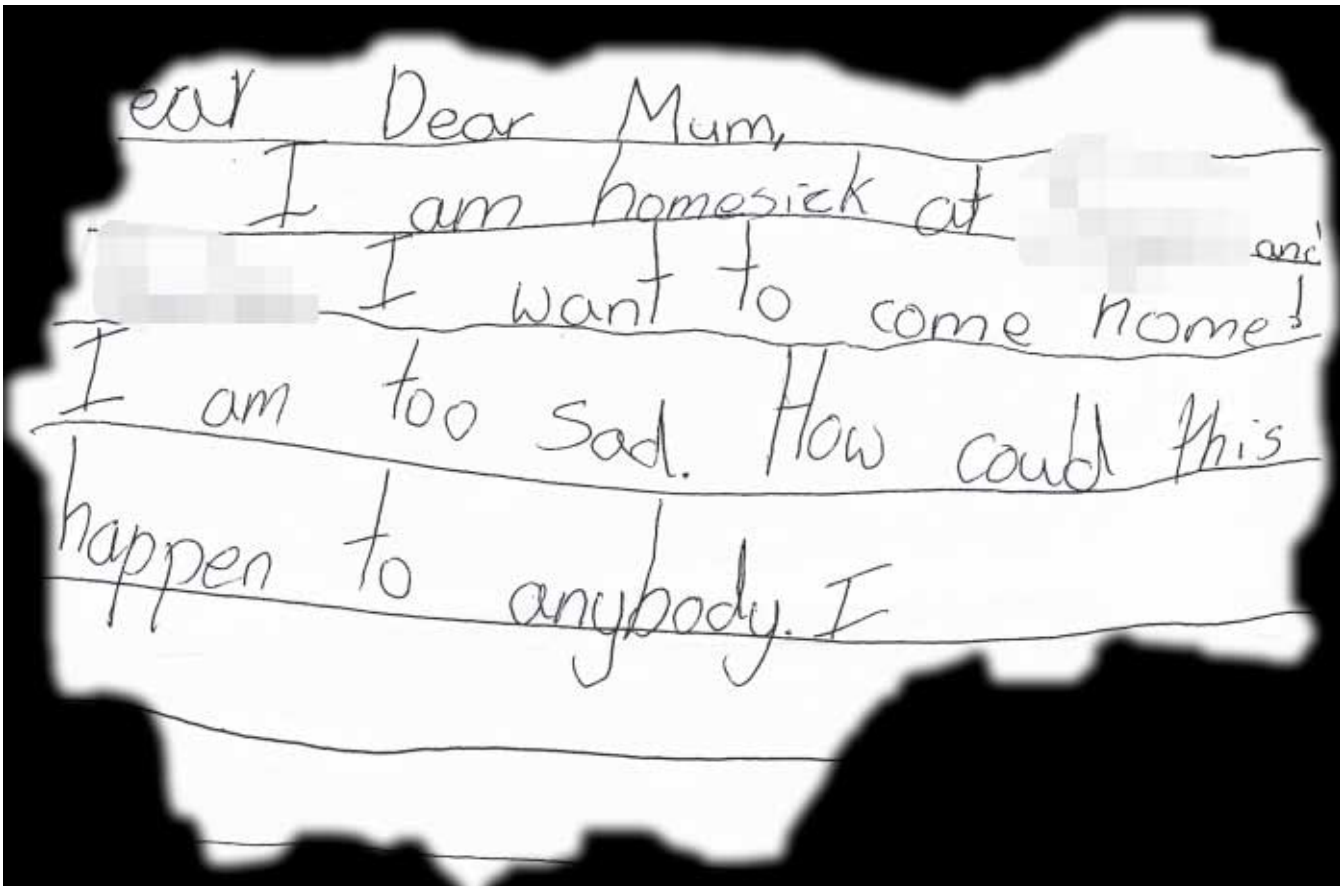 ear Dear Mum,
I am homesick at
and
I want to come home!
I am too sad. How coud this
happen to anybody. I